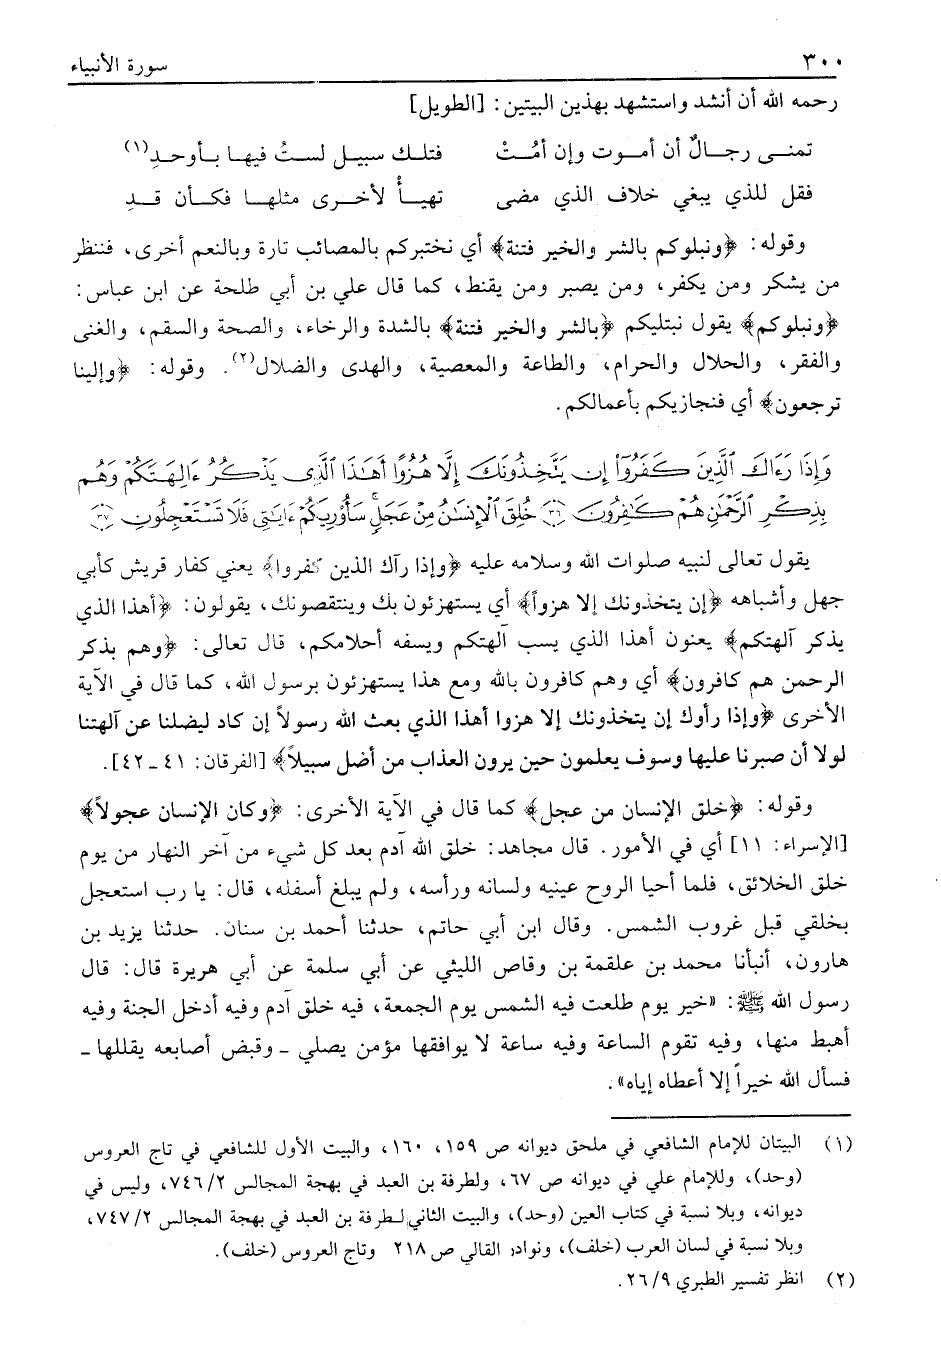 ٣٠٠ سورة الأنبياء
رحمه الله أن أنشد واستشهد بهذين البيتين: [الطويل]
تمنى رجالٌ أن أموت وإن أمُتْ فتلك سبيل لستُ فيها بأوحدِ(١)
فقل للذي يبغي خلاف الذي مضى تهيأْ لأخرى مثلها فكأن قدِ
وقوله: ﴿ونبلوكم بالشر والخير فتنة﴾ أي نختبركم بالمصائب تارة وبالنعم أخرى، فننظر
من يشكر ومن يكفر، ومن يصبر ومن يقنط، كما قال علي بن أبي طلحة عن ابن عباس:
﴿ونبلوكم﴾ يقول نبتليكم ﴿بالشر والخير فتنة﴾ بالشدة والرخاء، والصحة والسقم، والغنى
والفقر، والحلال والحرام، والطاعة والمعصية، والهدى والضلال(٢). وقوله: ﴿وإلينا
ترجعون﴾ أي فنجازيكم بأعمالكم.
وَإِذَا رَءَاكَ ٱلَّذِينَ كَفَرُوٓا۟ إِن يَتَّخِذُونَكَ إِلَّا هُزُوًا أَهَٰذَا ٱلَّذِى يَذْكُرُ ءَالِهَتَكُمْ وَهُم
بِذِكْرِ ٱلرَّحْمَٰنِ هُمْ كَٰفِرُونَ ﴿٣٦﴾ خُلِقَ ٱلْإِنسَٰنُ مِنْ عَجَلٍ ۚ سَأُو۟رِيكُمْ ءَايَٰتِى فَلَا تَسْتَعْجِلُونِ ﴿٣٧﴾
يقول تعالى لنبيه صلوات الله وسلامه عليه ﴿وإذا رآك الذين كفروا﴾ يعني كفار قريش كأبي
جهل وأشباهه ﴿إن يتخذونك إلا هزواً﴾ أي يستهزئون بك وينتقصونك، يقولون: ﴿أهذا الذي
يذكر آلهتكم﴾ يعنون أهذا الذي يسب آلهتكم ويسفه أحلامكم، قال تعالى: ﴿وهم بذكر
الرحمن هم كافرون﴾ أي وهم كافرون بالله ومع هذا يستهزئون برسول الله، كما قال في الآية
الأخرى ﴿وإذا رأوك إن يتخذونك إلا هزوا أهذا الذي بعث الله رسولاً إن كاد ليضلنا عن آلهتنا
لولا أن صبرنا عليها وسوف يعلمون حين يرون العذاب من أضل سبيلاً﴾ [الفرقان: ٤١ ـ ٤٢].
وقوله: ﴿خلق الإنسان من عجل﴾ كما قال في الآية الأخرى: ﴿وكان الإنسان عجولاً﴾
[الإسراء: ١١] أي في الأمور. قال مجاهد: خلق الله آدم بعد كل شيء من آخر النهار من يوم
خلق الخلائق، فلما أحيا الروح عينيه ولسانه ورأسه، ولم يبلغ أسفله، قال: يا رب استعجل
بخلقي قبل غروب الشمس. وقال ابن أبي حاتم، حدثنا أحمد بن سنان. حدثنا يزيد بن
هارون، أنبأنا محمد بن علقمة بن وقاص الليثي عن أبي سلمة عن أبي هريرة قال: قال
رسول الله ﷺ: «خير يوم طلعت فيه الشمس يوم الجمعة، فيه خلق آدم وفيه أدخل الجنة وفيه
أهبط منها، وفيه تقوم الساعة وفيه ساعة لا يوافقها مؤمن يصلي ـ وقبض أصابعه يقللها ـ
فسأل الله خيراً إلا أعطاه إياه».
(١) البيتان للإمام الشافعي في ملحق ديوانه ص ١٥٩، ١٦٠، والبيت الأول للشافعي في تاج العروس
(وحد)، وللإمام علي في ديوانه ص ٦٧، ولطرفة بن العبد في بهجة المجالس ٧٤٦/٢، وليس في
ديوانه، وبلا نسبة في كتاب العين (وحد)، والبيت الثاني لطرفة بن العبد في بهجة المجالس ٧٤٧/٢،
وبلا نسبة في لسان العرب (خلف)، ونوادر القالي ص ٢١٨ وتاج العروس (خلف).
(٢) انظر تفسير الطبري ٢٦/٩.